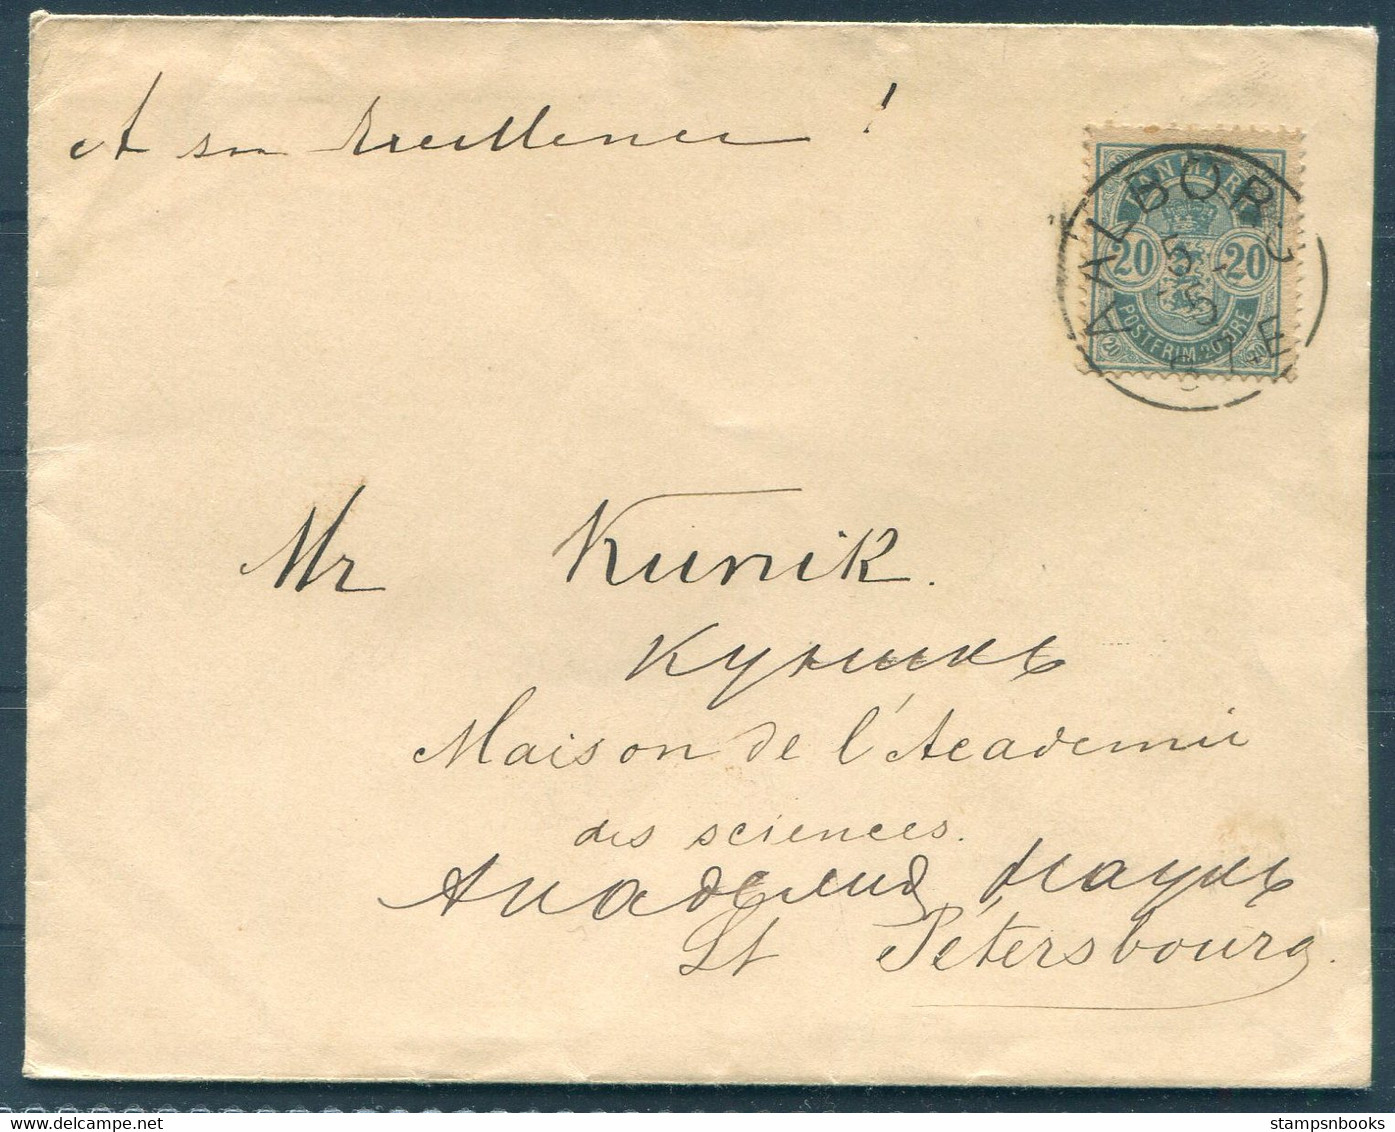 A son Excellence !
DANMARK
20 20
POSTFRIM. 20 ØRE
20 20
AALBORG
5
5
7 E
Mr Kunik.
Куникъ
Maison de l'Académie
des sciences.
Академия Наукъ
St Pétersbourg.
stampsnbooks
www.delcampe.net